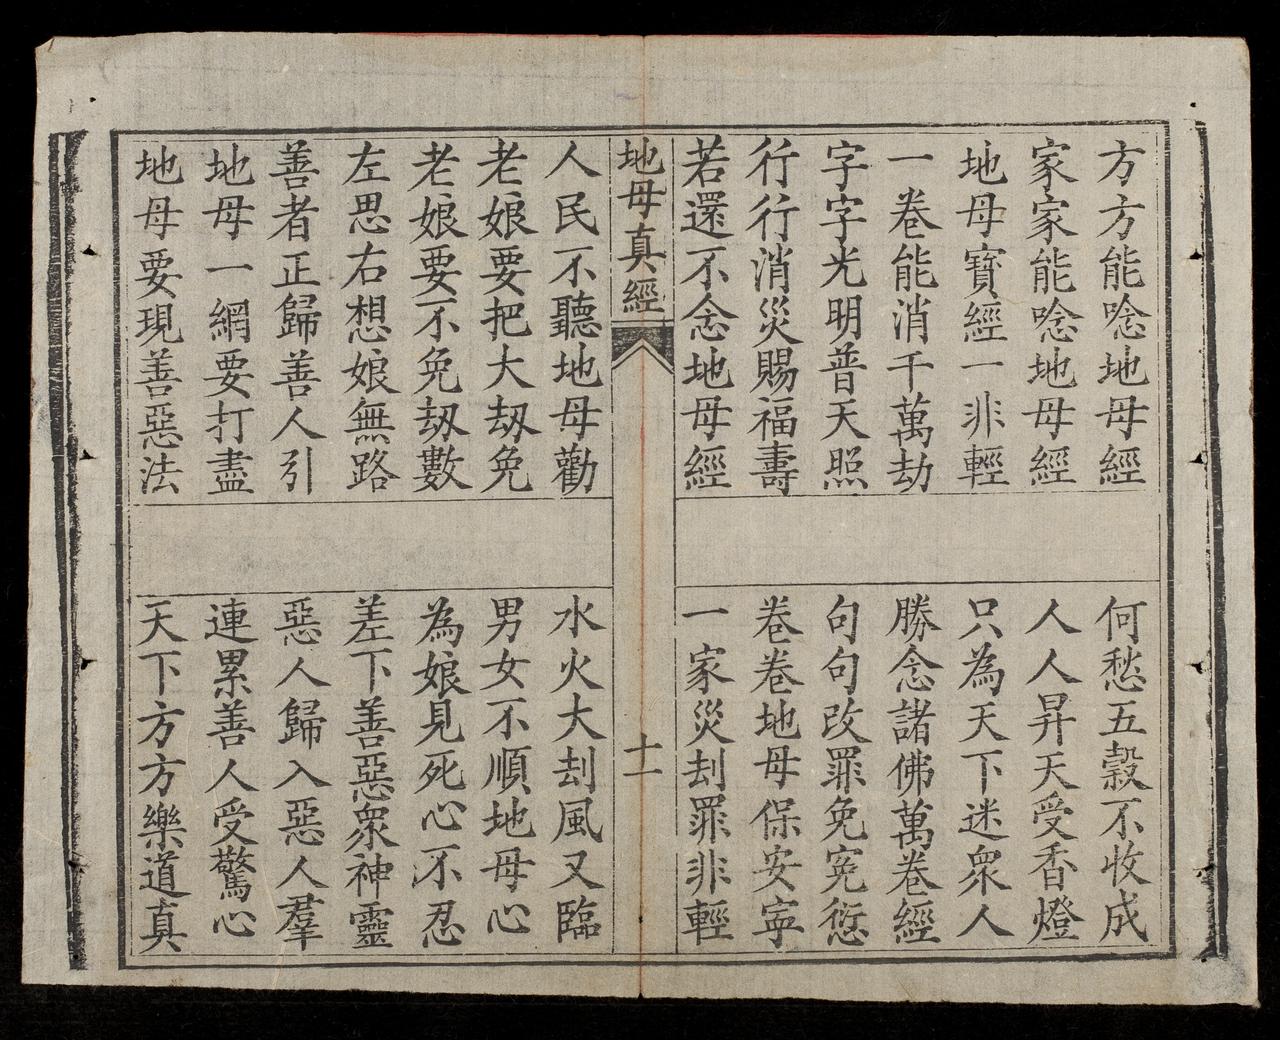 方方能唸地母經　何愁五穀不收成
家家能唸地母經　人人昇天受香燈
地母寶經一非輕　只為天下迷眾人
一卷能消千萬劫　勝念諸佛萬卷經
字字光明普天照　句句改罪免冤愆
行行消災賜福壽　卷卷地母保安寍
若還不念地母經　一家災刦罪非輕
地母真經　十一
人民不聽地母勸　水火大刦風又臨
老娘要把大刼免　男女不順地母心
老娘要不免刼數　為娘見死心不忍
左思右想娘無路　差下善惡眾神靈
善者正歸善人引　惡人歸入惡人羣
地母一網要打盡　連累善人受驚心
地母要現善惡法　天下方方樂道真